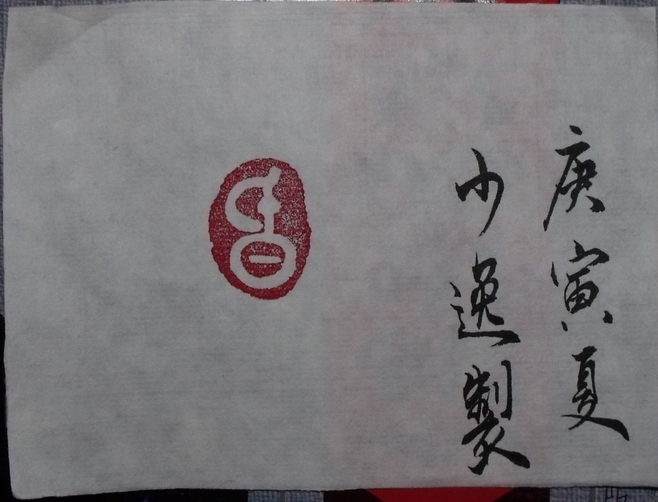 庚寅夏
少逸製